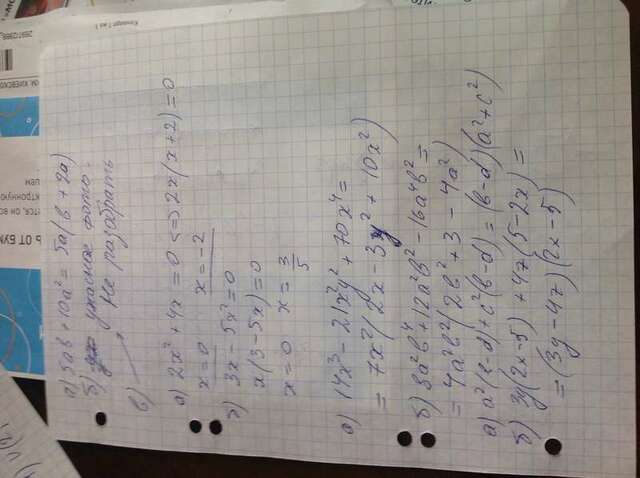 а) 5ab + 10a² = 5a(b + 2a)
б) ужасное фото.
Не разобрать
в)
а) 2x² + 4x = 0 <=> 2x(x+2) = 0
x = 0 x = -2
б) 3x - 5x² = 0
x(3-5x) = 0
x = 0 x = 3/5
а) 14x³ - 21x²y² + 70x⁴ =
= 7x²(2x - 3y² + 10x²)
б) 8a²b⁴ + 12a²b² - 16a⁴b² =
= 4a²b²(2b² + 3 - 4a²)
а) a²(b-d) + c²(b-d) = (b-d)(a²+c²)
б) 3y(2x-5) + 4z(5-2x) =
= (3y-4z)(2x-5)